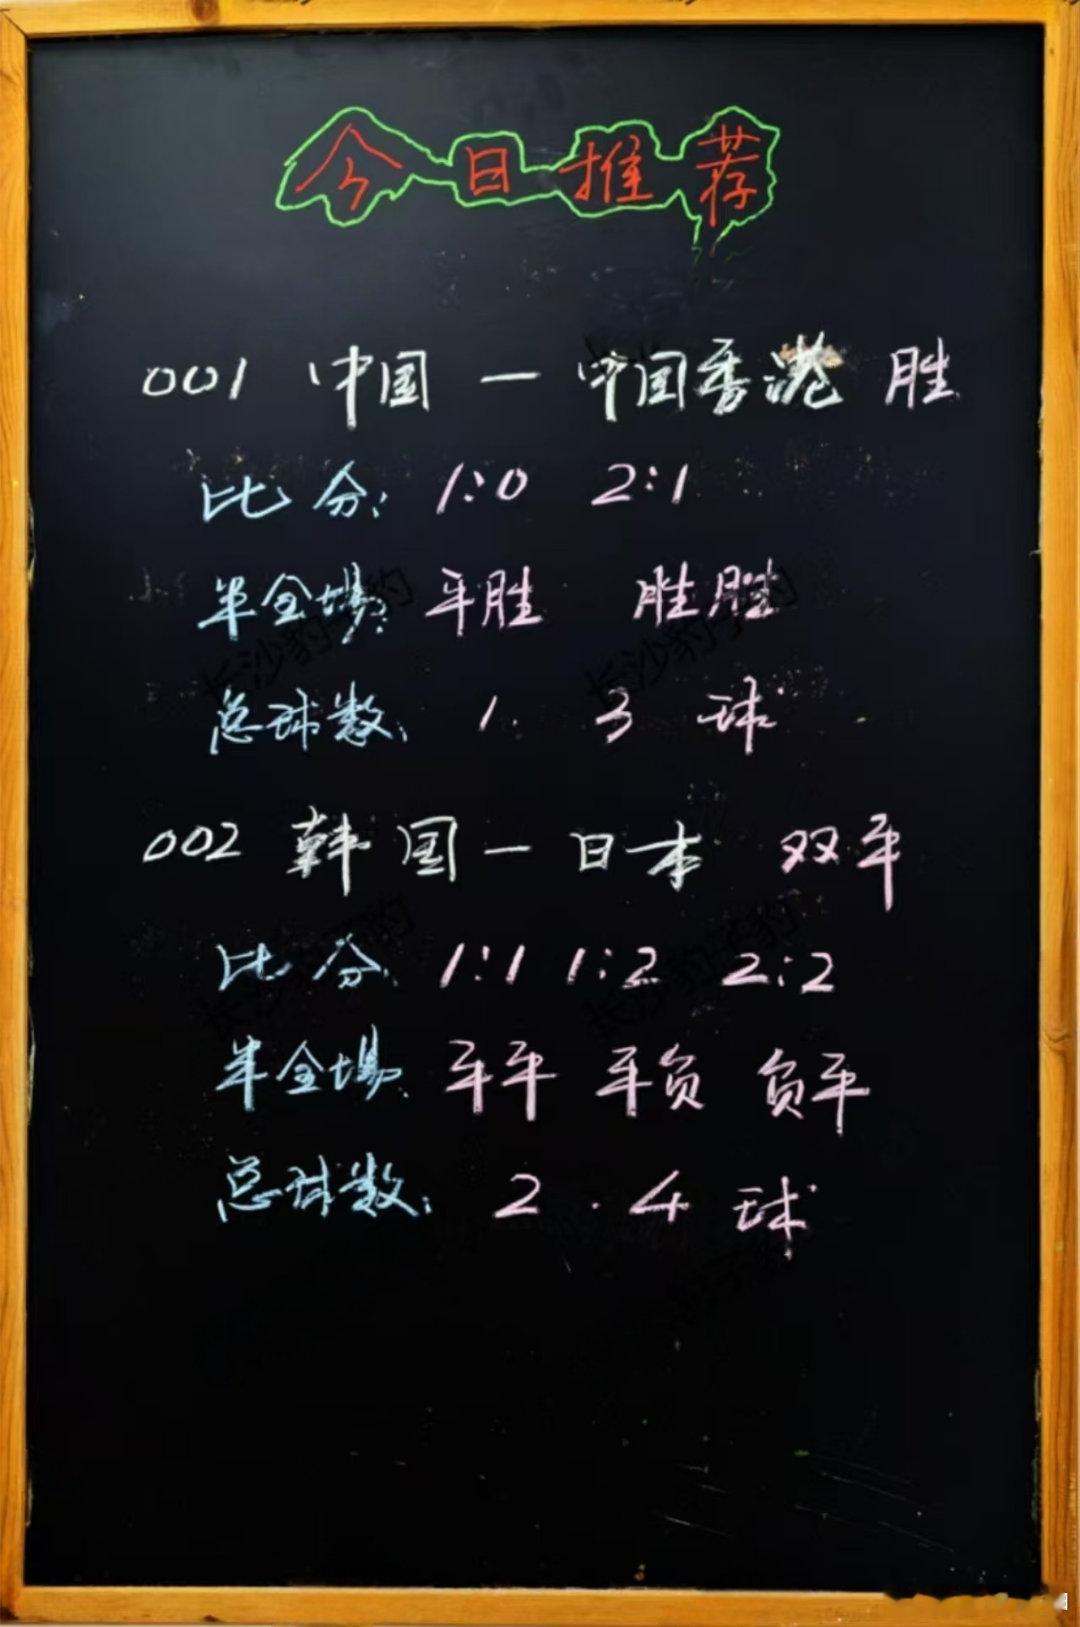 今日推荐
001 中国 — 中国香港 胜
比分: 1:0 2:1
半全場: 平胜 胜胜
总球数: 1. 3 球
002 韩国 — 日本 双平
比分: 1:1 1:2 2:2
半全場: 平平 平负 负平
总球数: 2 . 4 球
长沙豹子豹
长沙豹子豹